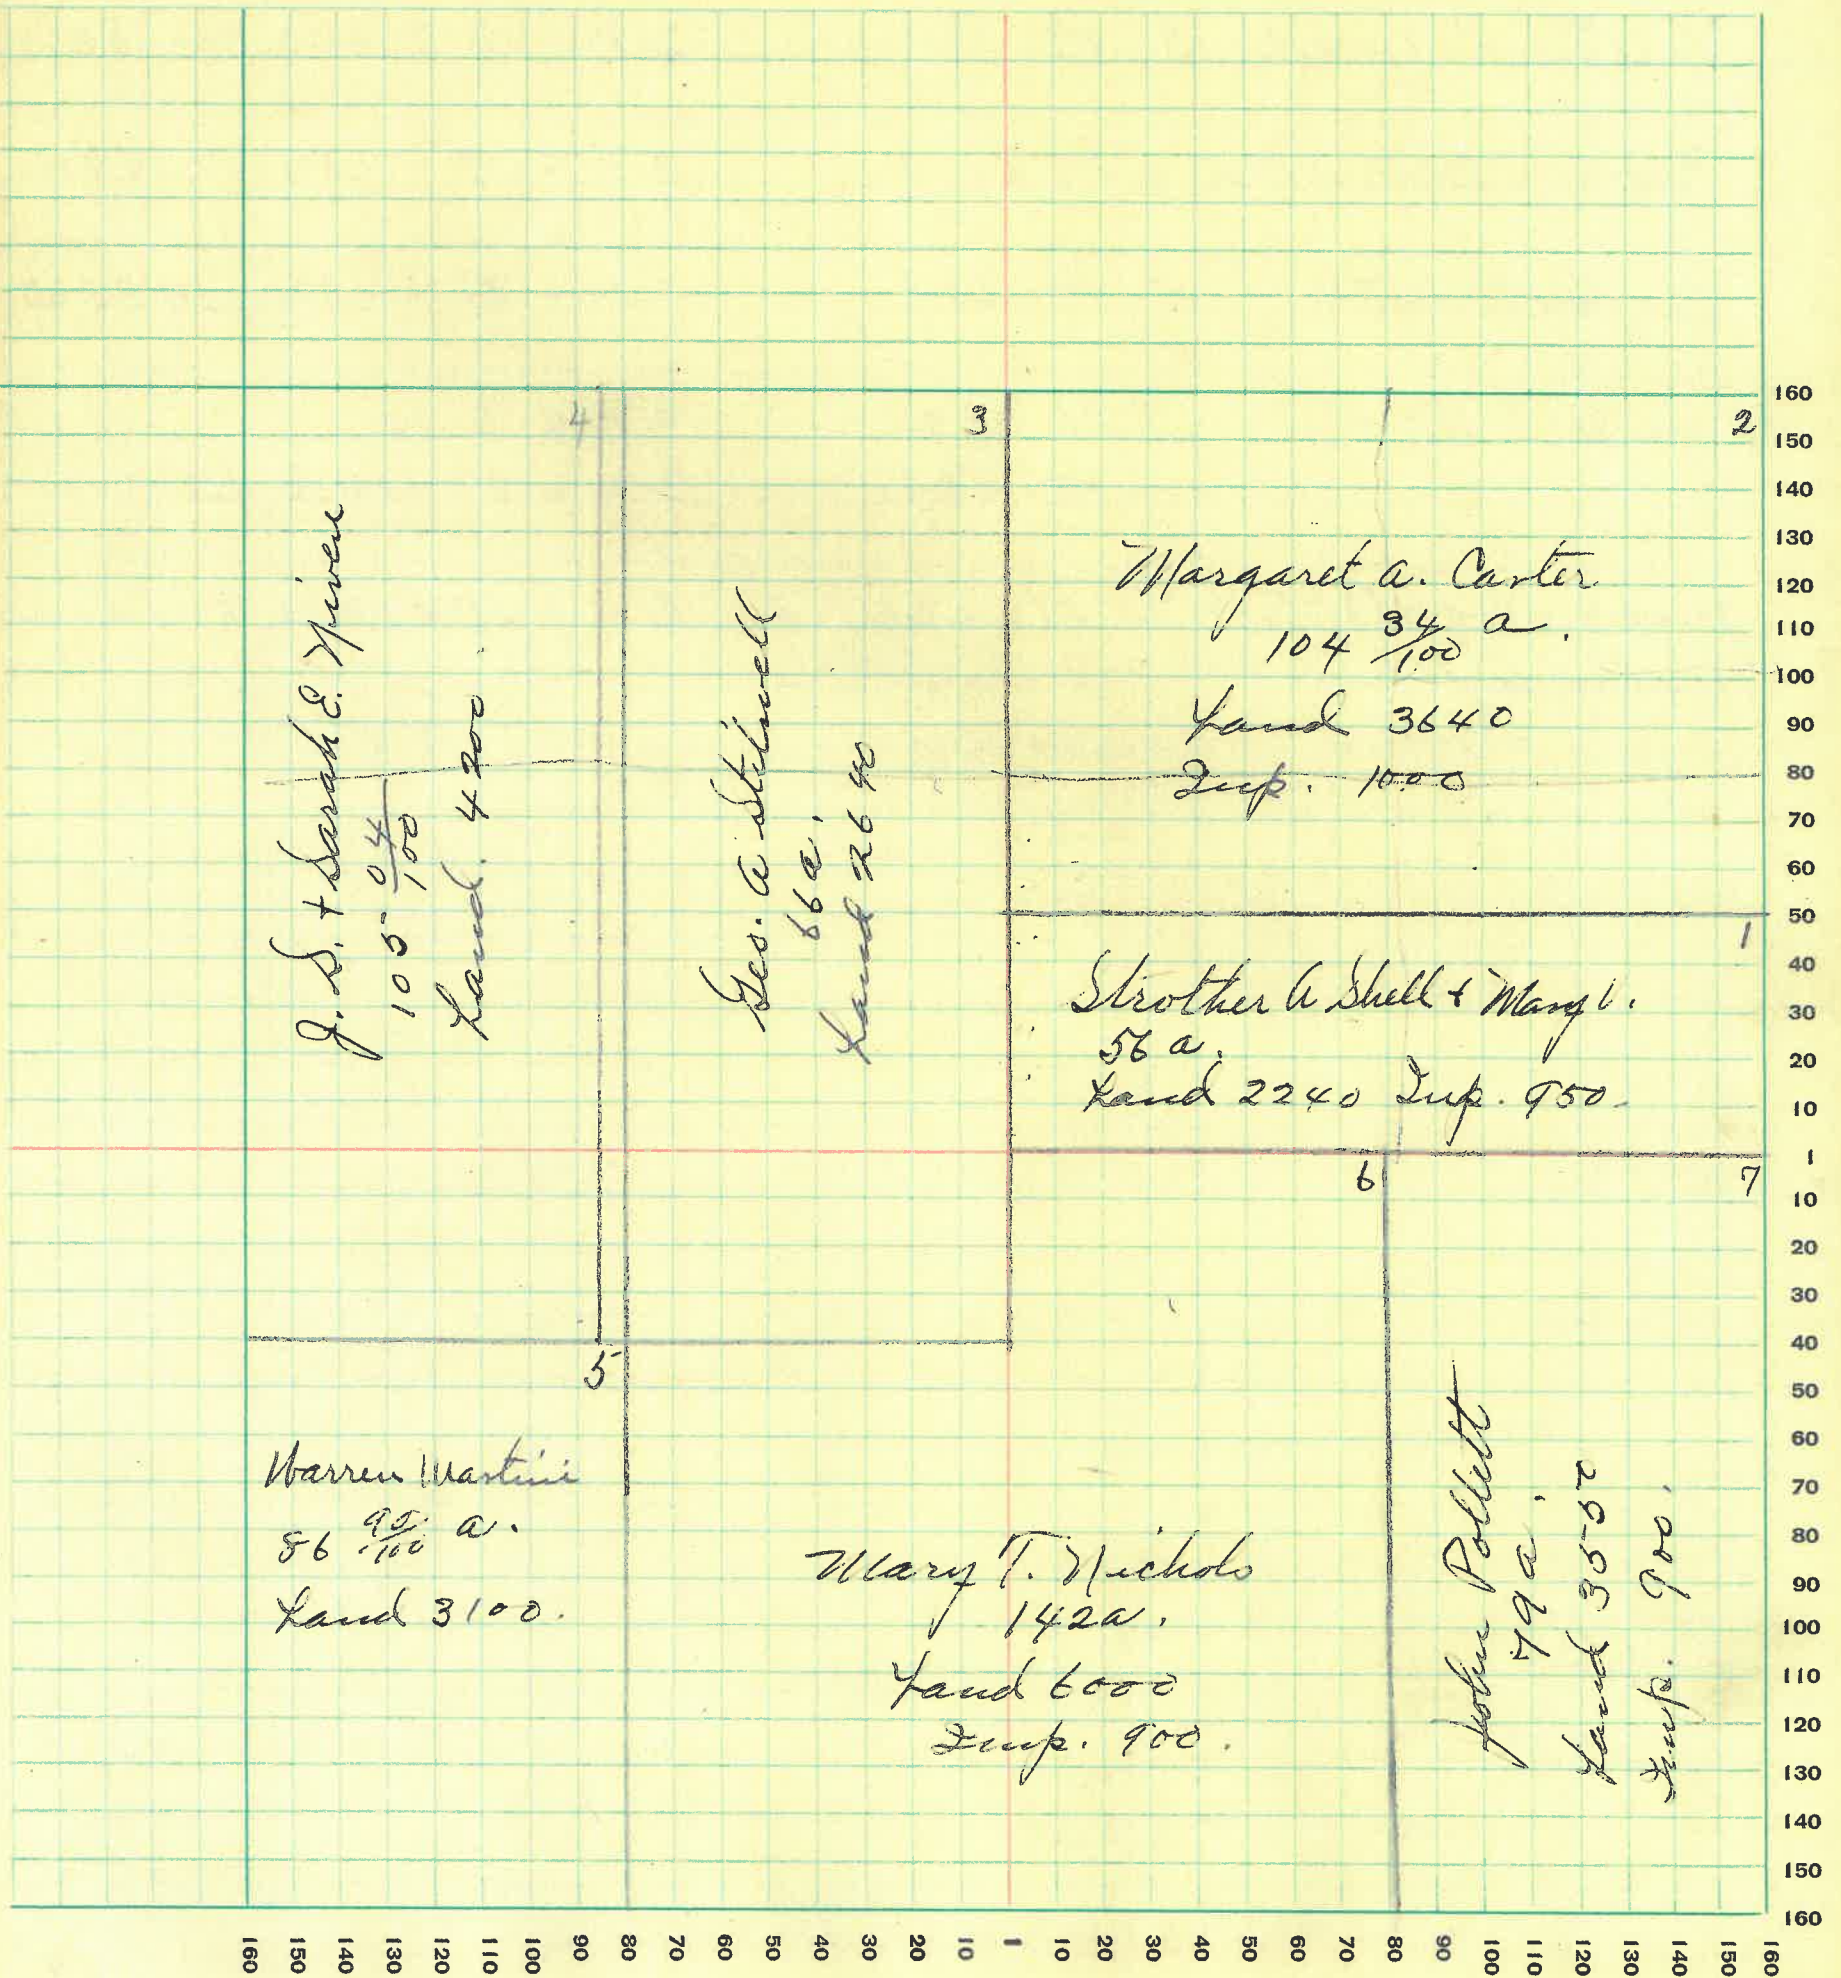 4
3
2
J. S. + Sarah E. Niven
105 04/100
Land. 4200.
Geo. A Stilwell
66 a.
Land 2640
Margaret A. Carter
104 34/100 a.
Land 3640
Imp. 1000
1
Strother A Shell + Mary
56 a.
Land 2240 Imp. 950
6
7
5
Warren Martin
86 95/100 a.
Land 3100.
Mary T. Nichols
142 a.
Land 6000
Imp. 900.
John Pollett
79 a.
Land 3550
Imp. 900.
160
150
140
130
120
110
100
90
80
70
60
50
40
30
20
10
1
10
20
30
40
50
60
70
80
90
100
110
120
130
140
150
160
160 150 140 130 120 110 100 90 80 70 60 50 40 30 20 10 1 10 20 30 40 50 60 70 80 90 100 110 120 130 140 150 160